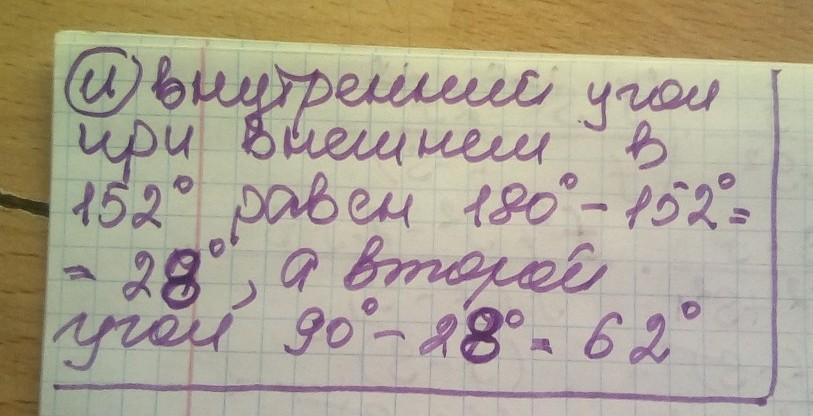 и) внутренний угол
при внешнем в
152° равен 180° - 152° =
= 28°, а второй
угол 90° - 28° = 62°